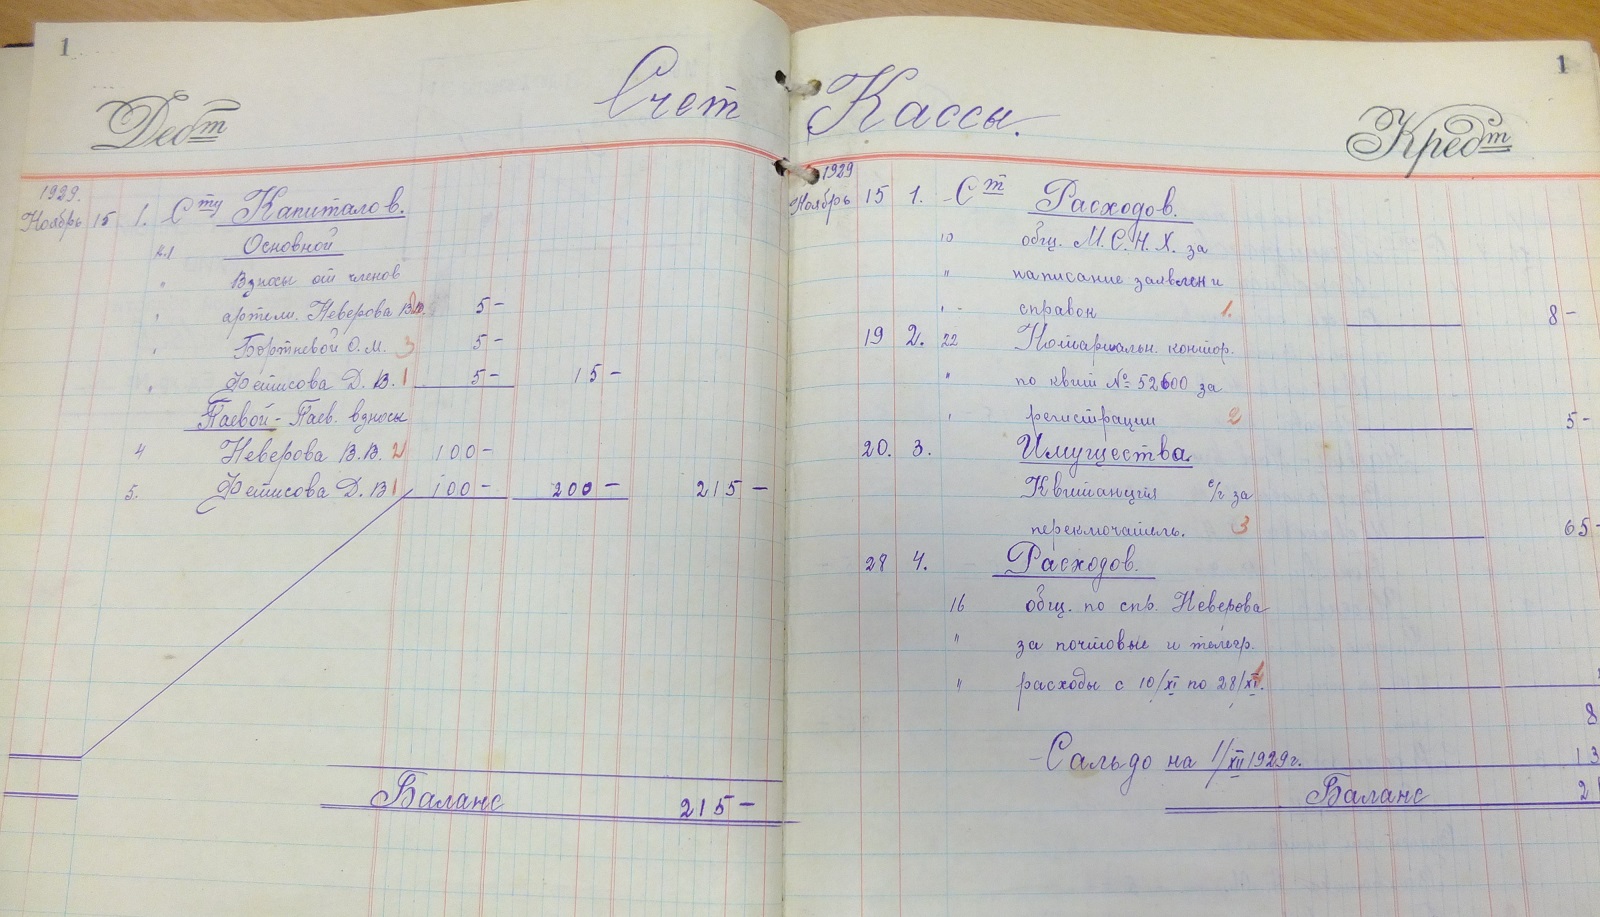 1
Дебт
Счет
1929.
Ноябрь 15 1. Сту Капиталов.
Основной
" Взносы от членов
" артели. Неверова В.В. 5-
" Бортневой О.М. 3 5-
" Фетисова Д.В. 1 5- 15-
Паевой - Паев. взносы
4 Неверова В.В. 2 100-
5. Фетисова Д.В 1 100- 200- 215-
Баланс 215-
1
Кассы.
Кредт
1929
Ноябрь 15 1. Ст Расходов.
10 общ. М.С.Н.Х. за
" написание заявлен и
" справок 1. 8-
19 2. 22 Нотариальн. контор.
" по квит № 52600 за
" регистрации 2 5-
20. 3. Имущества
Квитанция с/г за
переключатель. 3 65-
28 4. Расходов.
16 общ. по спр. Неверова
" за почтовые и телегр.
" расходы с 10/XI по 28/XI.
8
Сальдо на 1/XII 1929 г. 13
Баланс 21